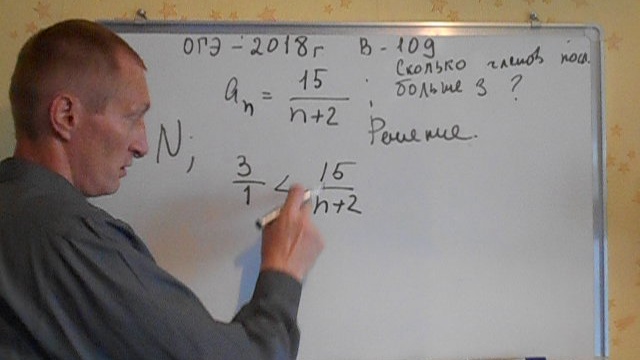 ОГЭ - 2018 г В - 109
aₙ = 15/(n+2) ; Сколько членов посл.
больше 3 ?
Решение.
N;
3/1 < 15/(n+2)